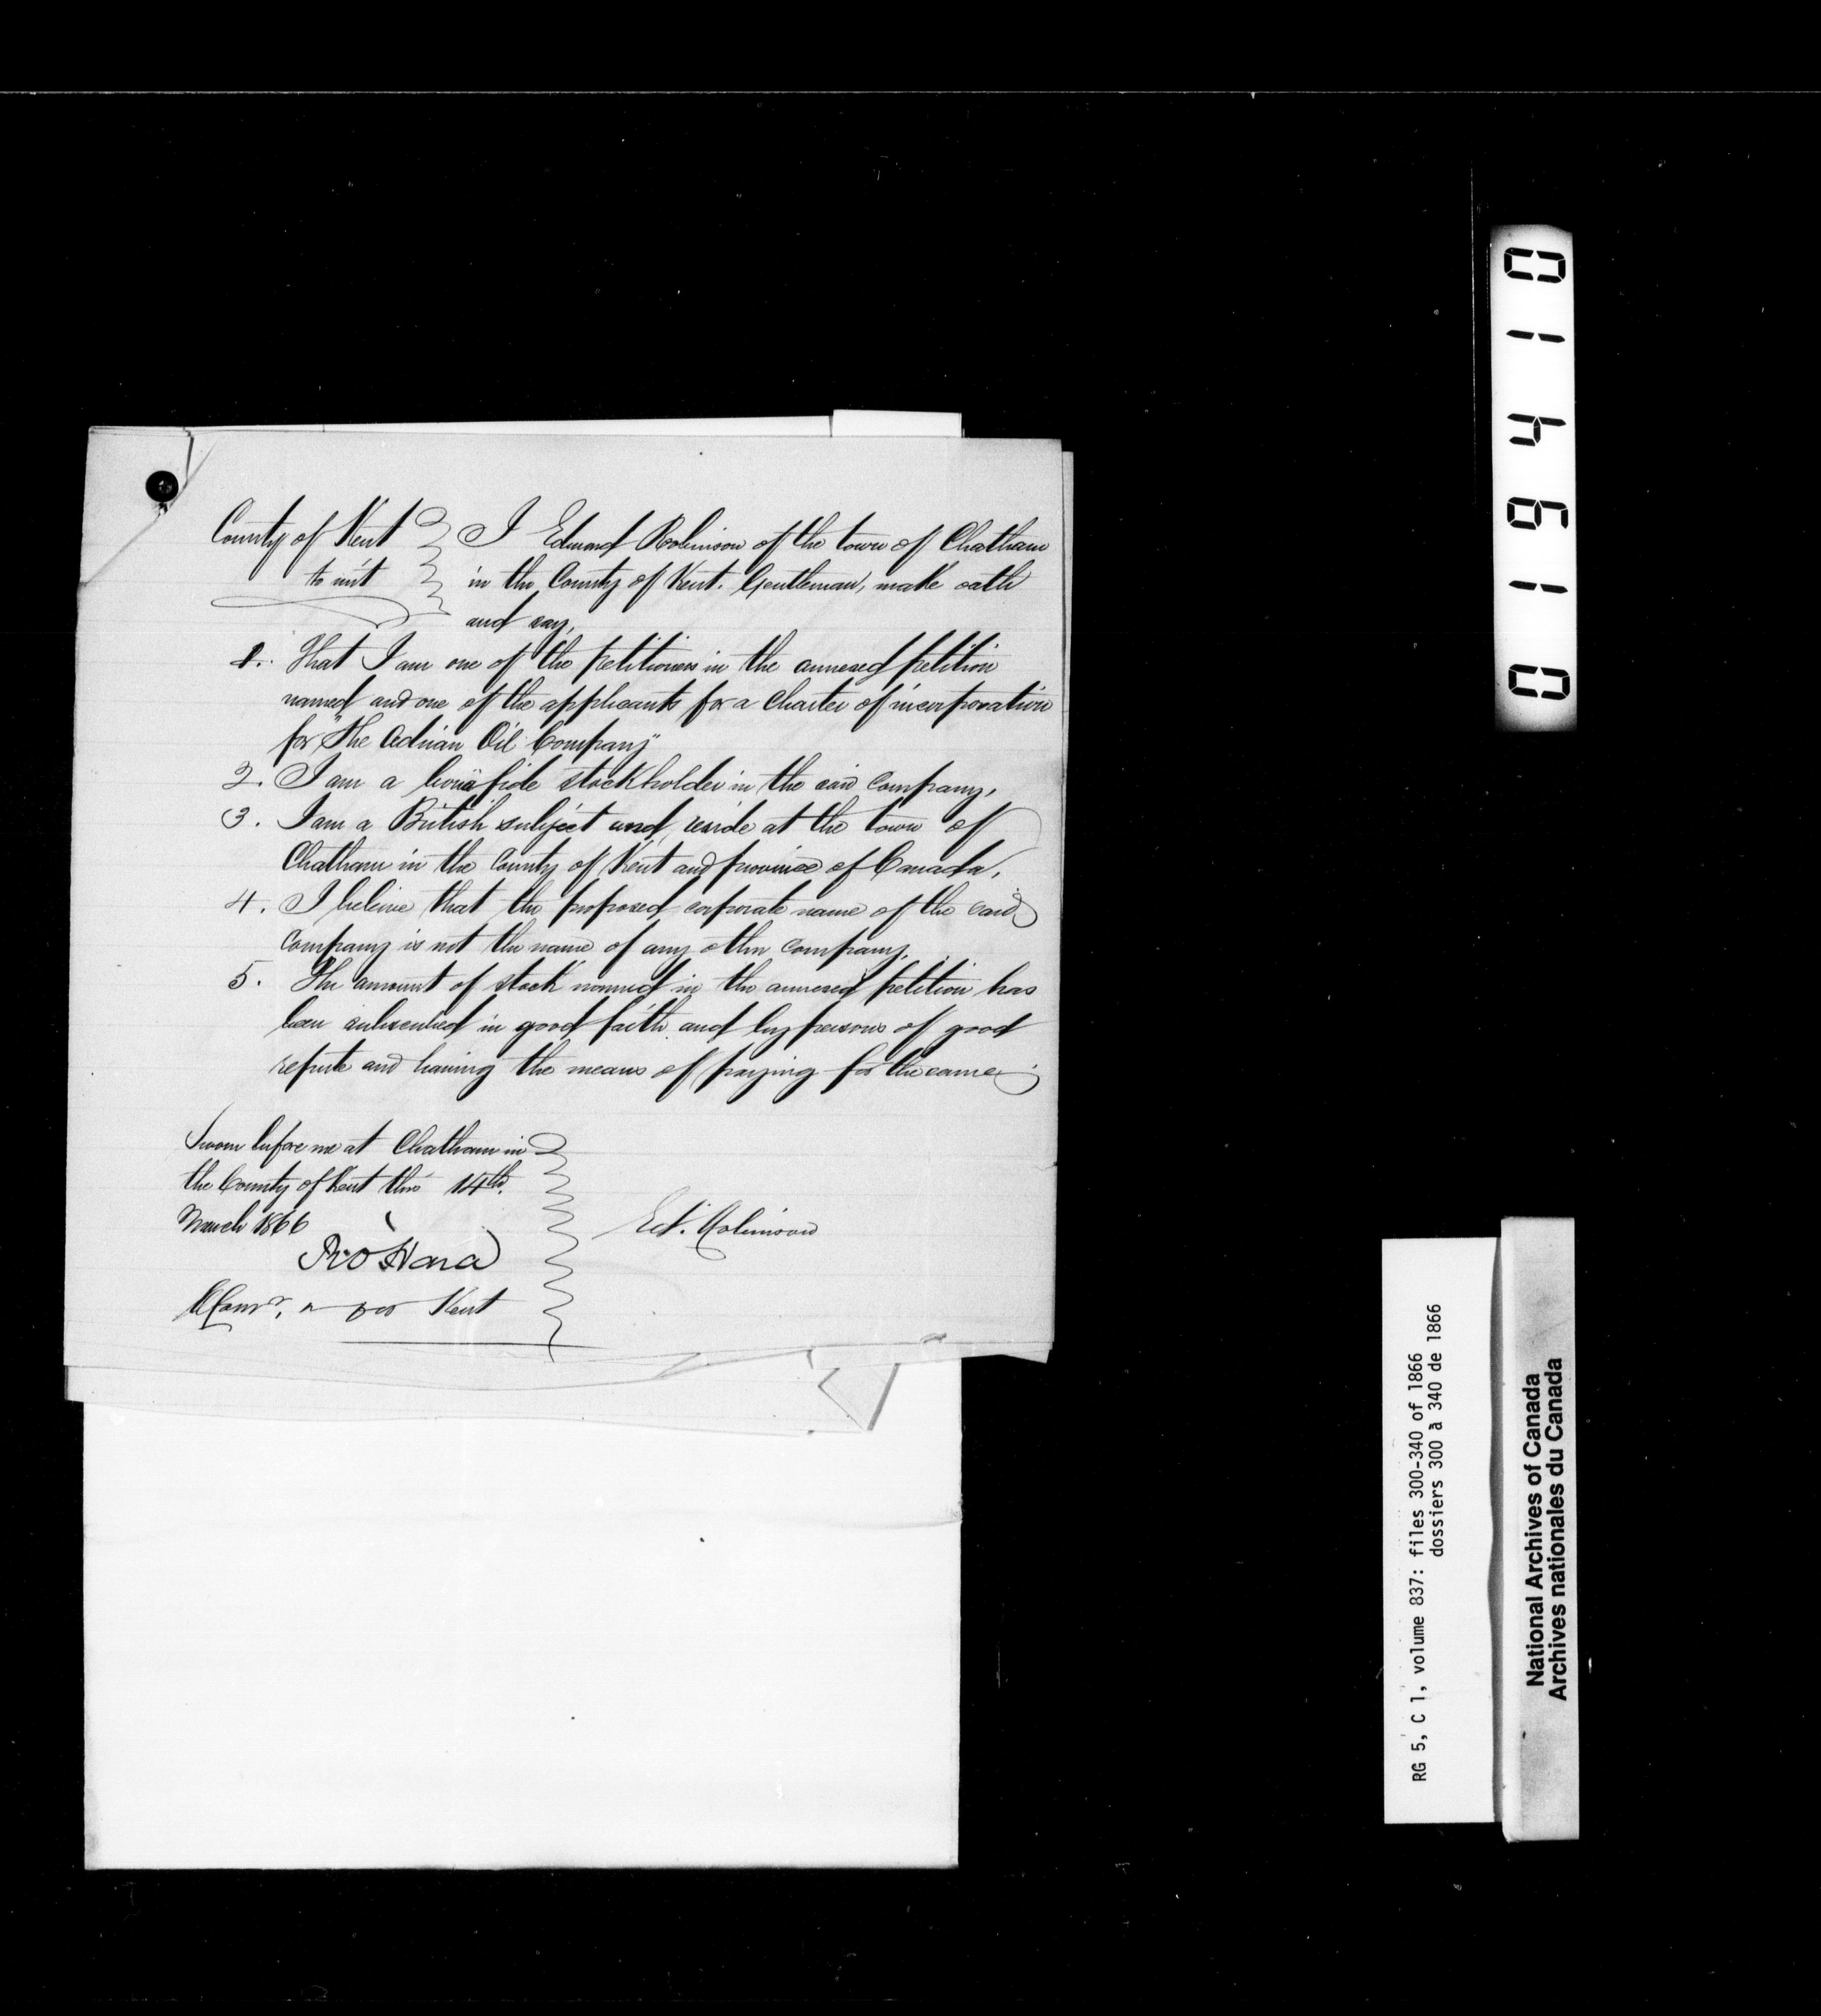 County of Kent } I Edward Robinson of the town of Chatham
to wit } in the County of Kent. Gentleman, make oath
and say,
1. That I am one of the petitioners in the annexed petition
named and one of the applicants for a Charter of incorporation
for "The Adrian Oil Company"
2. I am a bona fide stockholder in the said Company,
3. I am a British subject and reside at the town of
Chatham in the County of Kent and province of Canada,
4. I beleive that the proposed corporate name of the said
Company is not the name of any other Company.
5. The amount of stock named in the annexed petition has
been subscribed in good faith and by persons of good
repute and having the means of paying for the same
Sworn before me at Chatham in
the County of Kent this 14th.
March 1866
Ed. Robinson
O'Hara
Kent
016410
RG 5, C 1, volume 837: files 300-340 of 1866
dossiers 300 à 340 de 1866
National Archives of Canada
Archives nationales du Canada